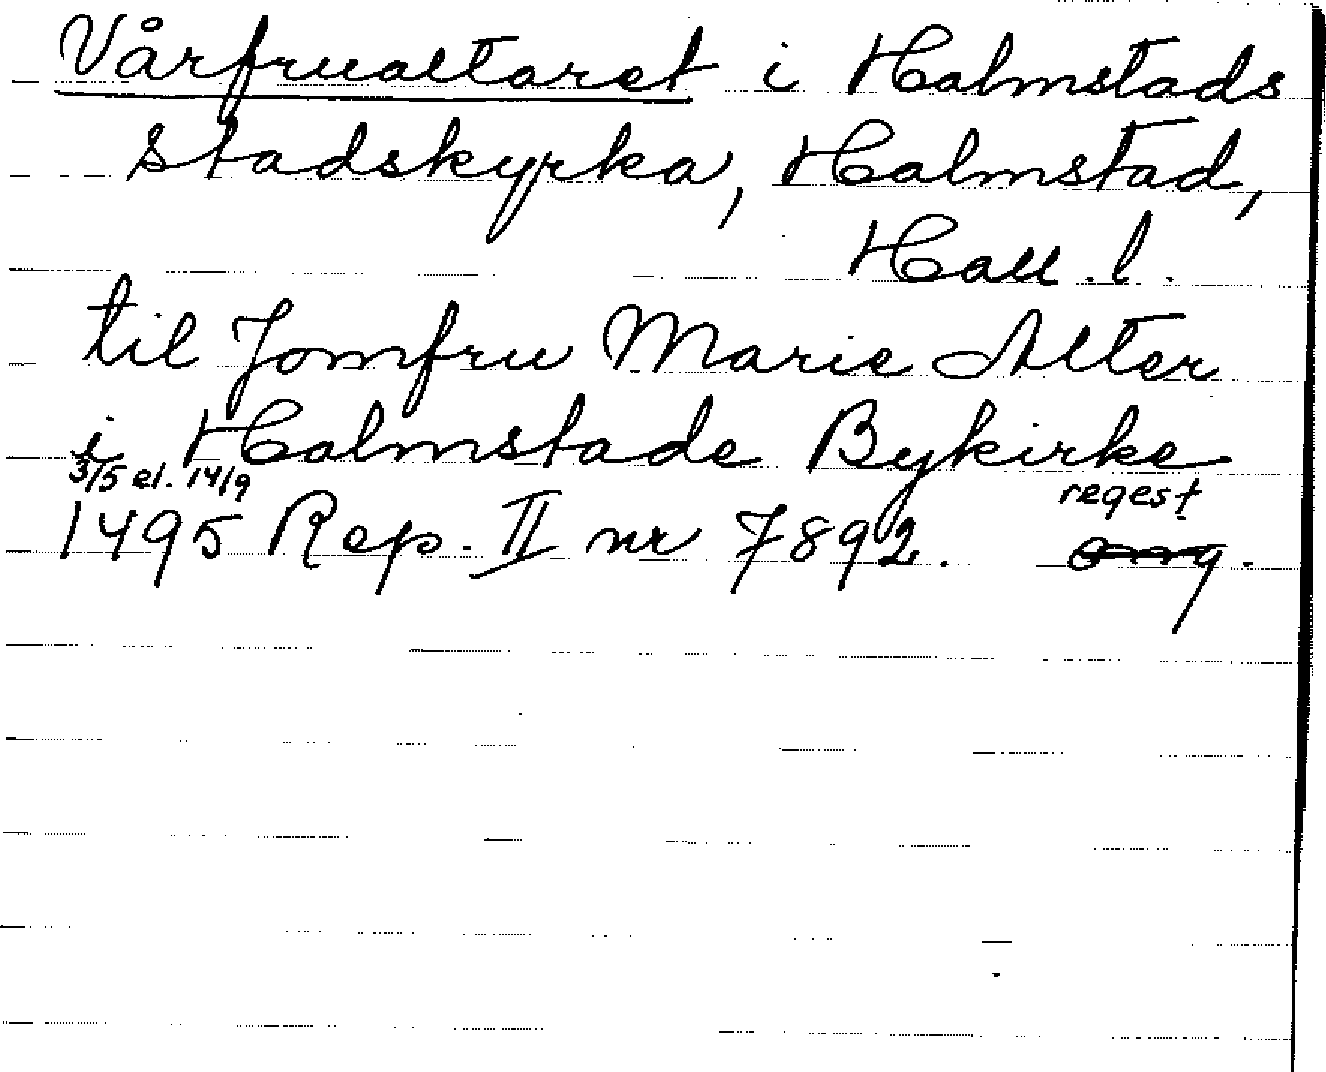 Vårfrualtaret i Halmstads
stadskyrka, Halmstad,
Hall. l.
til Jomfru Marie Alter
i Halmstade Bykirke
3/5 el. 14/9
regest
1495 Rep. II nr 7892.